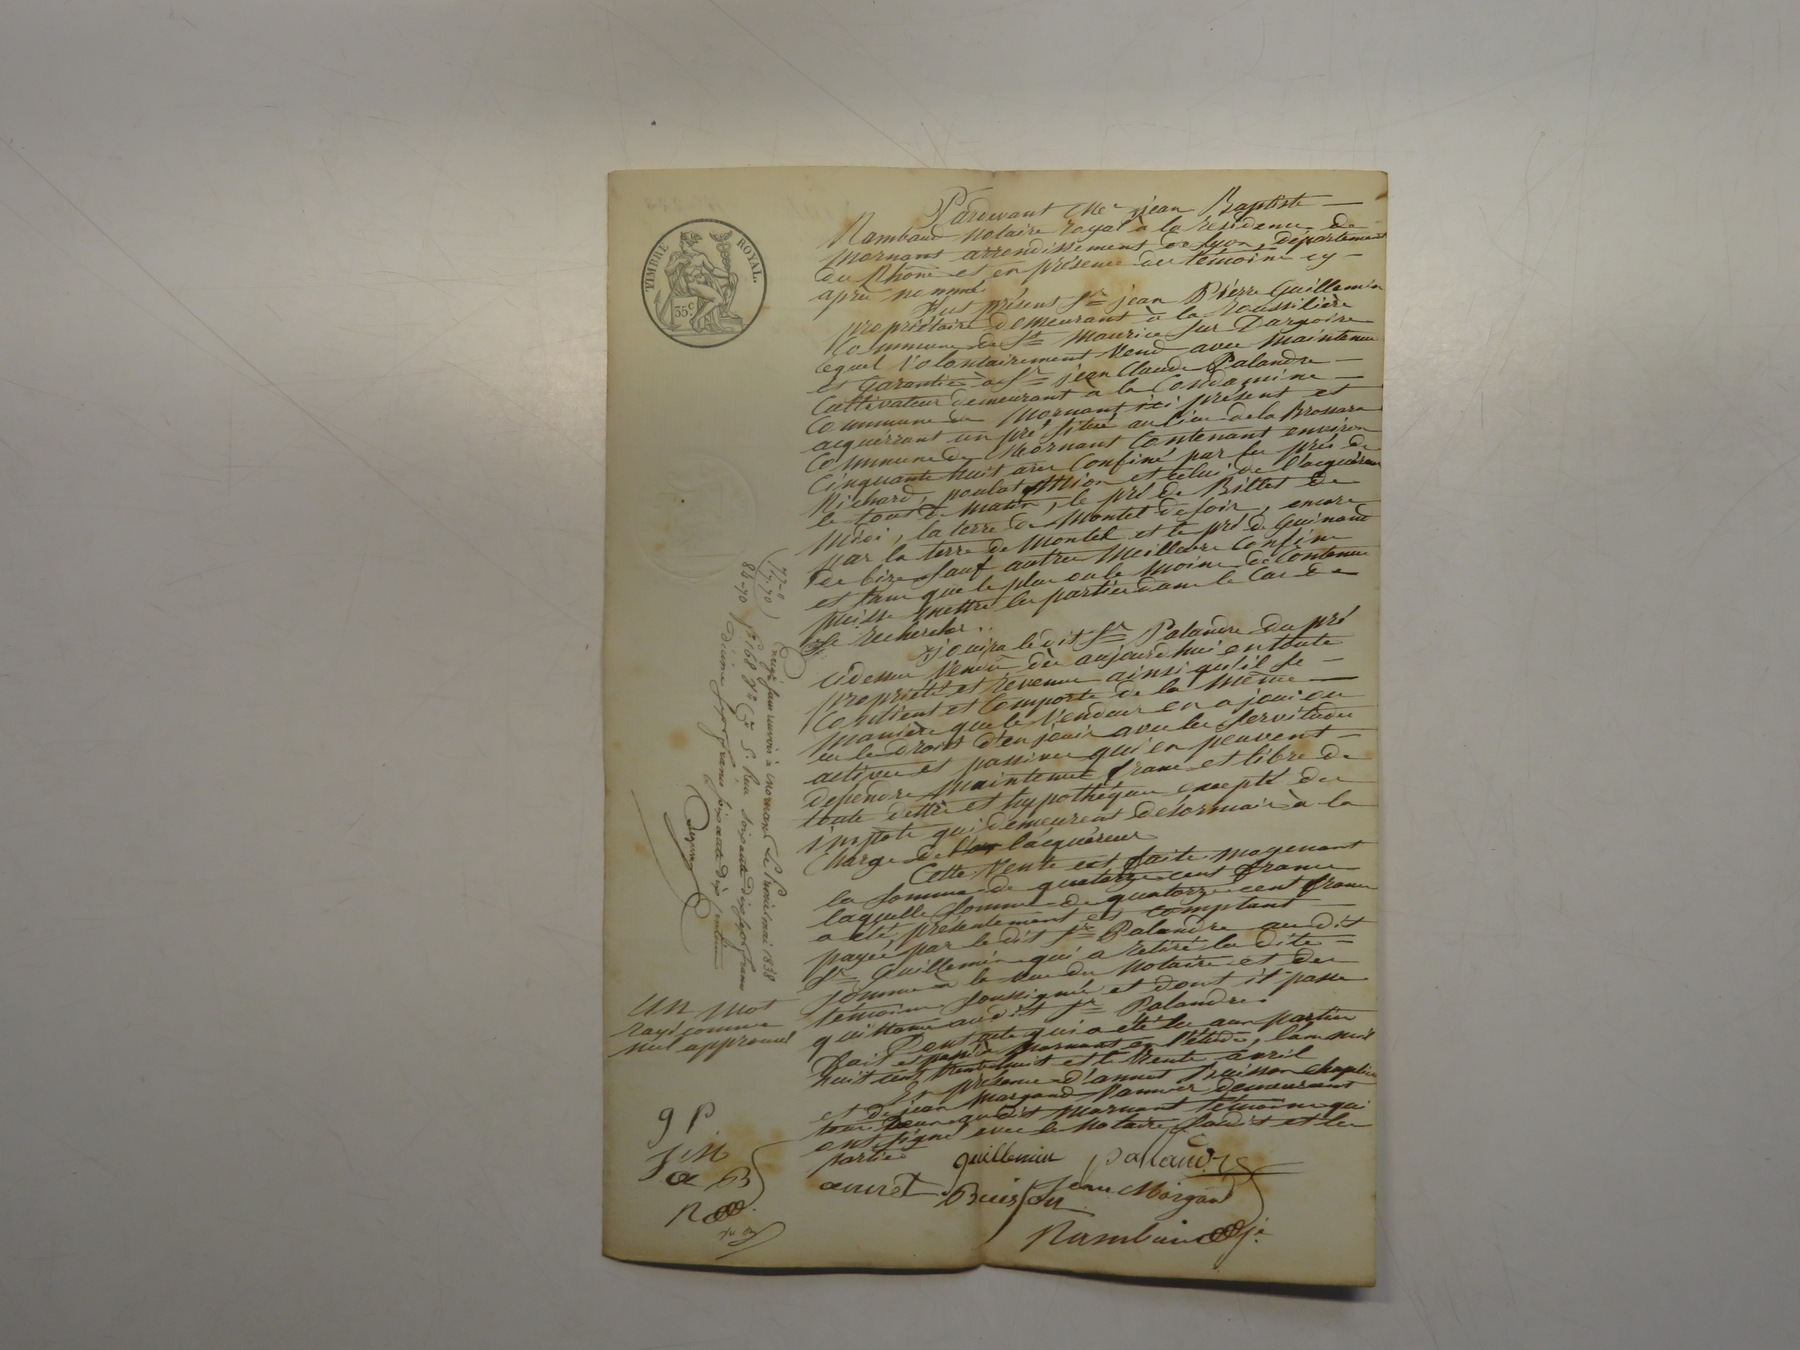 TIMBRE ROYAL.
35 C
Pardevant Me jean Baptiste
Rambaud notaire royal à la résidence de
Mornant arrondissement de lyon, département
du Rhône et en présence des témoins cy-
après nommés
Fut présent Sr jean Pierre Guillemin
propriétaire demeurant à la roussilière
Commune de St Maurice sur Dargoire
lequel volontairement vend avec maintenue
et Garantie à Sr jean Claude Palandre
Cultivateur demeurant à la
Commune de Mornant ici présent et
acquérant un pré situé au lieu de la Brossara
Commune de Mornant Contenant environ
Cinquante huit ares Confiné par les prés de
Richard, poulat et celui de l'acquéreur
le tout de matin, le pré de Billet de
Midi, la terre de Montel de soir, encore
par la terre de Montel et le pré de Guinand
de bize sauf autres meilleurs Confins
et sans que le plus ou le moins de Contenue
puisse mettre les parties dans le Cas de
se rechercher.
jouira le dit Sr Palandre du pré
cidessus vendu dès aujourdhui en toute
propriété et revenus ainsi qu'il se
Contient et Comporte de la même
manière que le vendeur en a joui ou
eu le droit d'en jouir avec les servitudes
actives et passives qui en peuvent
dependre maintenu franc et libre de
toute dette et hypothèque excepté des
impots qui demeurent désormais à la
Charge de l'acquéreur
Cette Vente est faite moyenant
la somme de quatorze cent francs
laquelle somme de quatorze cent francs
a été présentement et comptant
payée par le dit Sr Palandre au dit
Sr Guillemin qui a retiré la dite
somme a la vue du notaire et des
témoins soussignés et dont il passe
quittance audit Sr Palandre.
Dont acte qui a été lu aux parties
Fait et passé à Mornant en l'étude, l'an mil
huit cent trente huit et le trente avril
En présence d'annet Buisson chapelier
et de jean Margand Vannier demeurant
tous Deux au dit Mornant témoins qui
ont signé avec le notaire susdit et les
parties
guillemin palandre
annet Buisson Jean Morgand
Rambaud
enregistré sans renvois à mornant Le premier mai 1838
f° 168 Ro C 7 5. Reçu soixante dix sept francs
décime sept francs soixante dix centimes
77-0
7.70
88-70
Un mot
rayé comme
nul approuvé
g P
J M
a B
R